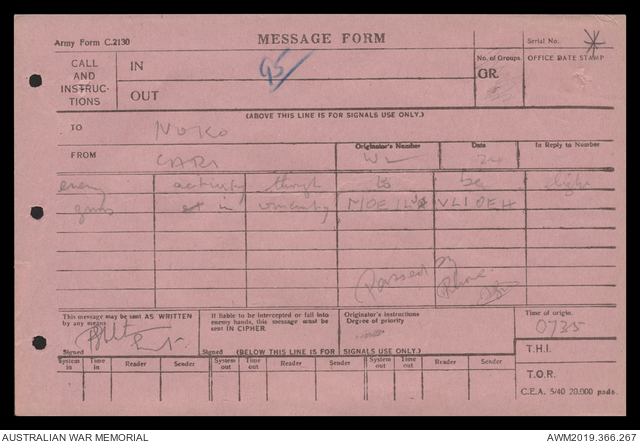 Army Form C.2130
MESSAGE FORM
Serial No.
CALL AND INSTRUC-TIONS
IN
OUT
95
No. of Groups.
GR.
OFFICE DATE STAMP
(ABOVE THIS LINE IS FOR SIGNALS USE ONLY.)
TO NOKO
FROM CARI
Originator's Number
Date 24
In Reply to Number
enemy activity though to be slight
guns in vicinity
Passed by Phone
This message may be sent AS WRITTEN by any means
Signed
If liable to be intercepted or fall into enemy hands, this message must be sent IN CIPHER.
Signed
Originator's instructions
Degree of priority
Time of origin.
0735
(BELOW THIS LINE IS FOR SIGNALS USE ONLY.)
T.H.I.
System in Time in Reader Sender System out Time out Reader Sender System out Time out Reader Sender
T.O.R.
C.E.A. 5/40 20,000 pads.
AUSTRALIAN WAR MEMORIAL
AWM2019.366.267